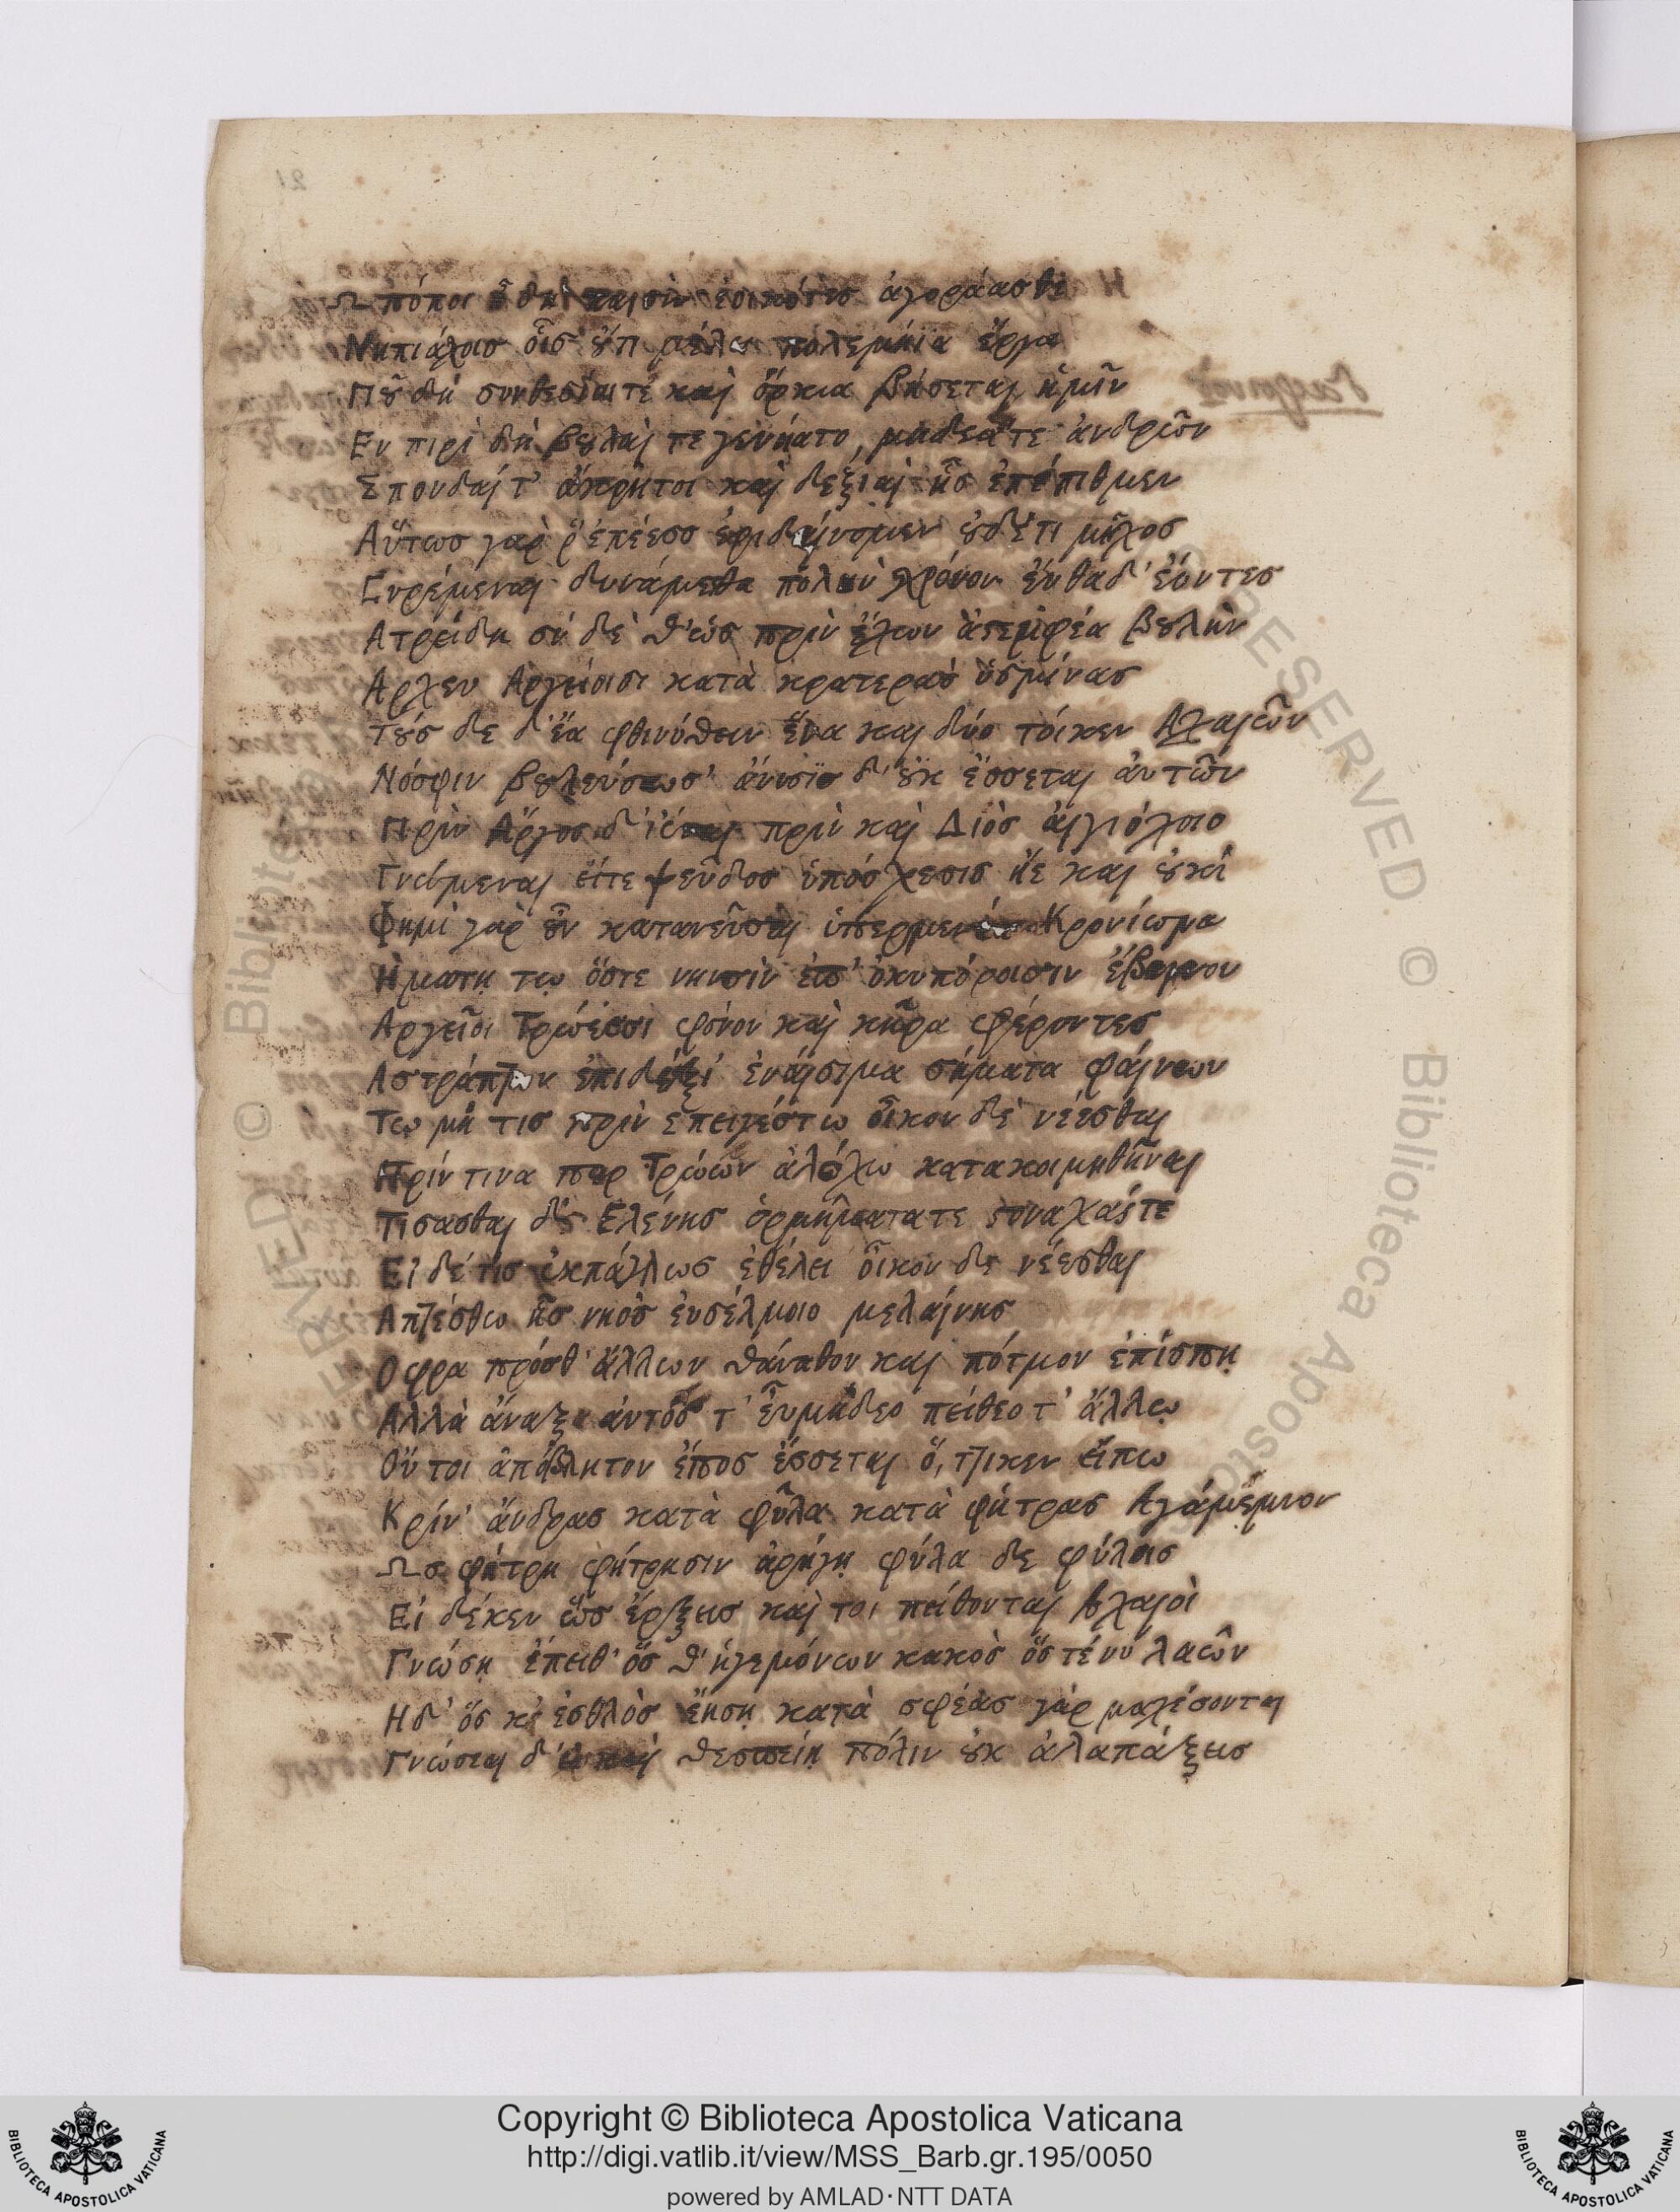 Ω πόποι ἦ δὴ παισὶν ἐοικότες ἀγοράασθε
Νηπιάχοις οἷς ȣ̓́τι μέλει πολεμήϊα ἔργα
Πȣ͂ δὴ συνθεσίαιτὲ καὶ ὅρκια βήσεται ἡμῖν
Εν πιρὶ δὴ βȣλαὶ τε γενήατο, μηδεάτε ἀνδρῶν
Σπονδαί τ' ἄκρητοι καὶ δεξιαὶ ᾗς ἐπέπιθμεν
Αὔτως γαρ ῥ' ἐπέεσσ ἐριδαίνομεν ȣδέτι μῆχος
Ευρέμεναι δυνάμεθα πολὺν χρόνον ἐνθάδ' ἐόντες
Ατρείδη σύ δὲ θ' ὡς πρὶν ἔχων ἀστεμφέα βȣλὴν
Αρχευ Αργείοισι κατὰ κρατερὰς ὑσμίνας
Τȣ́σ δε δ' ἔα φθινύθειν ἕνα και δύο τόικεν Αχαιῶν
Νόσφιν βȣλεύσωσ' ἄνυσισ δ' ȣκ ἔσσεται ἀυτῶν
Πρὶν Αργοσ δ' ἰέναι πρὶν καὶ Διὸσ αἰγιόχοιο
Γνώμεναι εἴτε ψεῦδοσ ὑπόσχεσισ ἠὲ και ȣκὶ
Φημὶ γὰρ ȣ̓͂ν κατανεῦσαι ὑπερμενέα Κρονίωνα
Ηματη τῳ ὅστε νηυσὶν ἐπ' ὀκυπόροισιν ἔβαινον
Αργεῖοι Τρώεσσι φόνον καὶ κῆρα φέροντες
Αστράπτων ἐπιδέξι' ἐναίσιμα σήματα φαίνων
Τῳ μή τισ πρὶν επειγέστω οἶκον δὲ νέεσθαι
Πρίν τινα παρ Τρώων ἀλόχω κατακοιμηθῆναι
Τισασθαι δ' Ελένησ ὁρμήματατε στοναχάστε
Εἰ δέ τισ ἐκπάγλωσ ἐθέλει οἶκον δε νέεσθαι
Απτέσθω ἧσ νηὸσ ἐυσέλμοιο μελαίνησ
Οφρα πρόσθ' ἄλλων θάναθον και πότμον ἐπίσπῃ
Αλλὰ ἄναξ ἀυτόσ τ' ἐυμήδεο πείθεο τ' ἄλλῳ
Οὔ τοι ἀπόβλητον ἔπος ἔσσεται ὅ,ττικεν εἴπω
Κρίν' ἄνδρας κατὰ φῦλα κατὰ φήτρασ Αγάμεμνον
Ωσ φήτρη φήτρησιν ἀρήγῃ φύλα δε φύλοισ
Εἰ δέκεν ὥσ ἔρξεισ καὶ τοι πείθονται Αχαιοὶ
Γνώσῃ ἔπειθ' ὅσ θ' ἡγεμόνων κακὸσ ὅσ τένυ λαῶν
Ηδ' ὅσ κ' ἐσθλὸσ ἔῃσῃ κατὰ σφέασ γὰρ μαχέσονται
Γνώσεαι δ' ἢ καὶ θεσπείῃ πόλιν ȣκ ἀλαπάξεισ
21
Copyright © Biblioteca Apostolica Vaticana
http://digi.vatlib.it/view/MSS_Barb.gr.195/0050
powered by AMLAD·NTT DATA
BIBLIOTECA APOSTOLICA VATICANA
BIBLIOTECA APOSTOLICA VATICANA